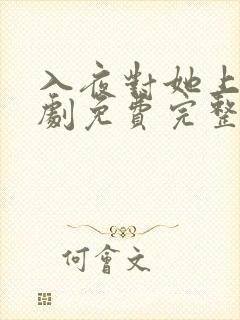 入夜對她上
劇免費完整
何會文